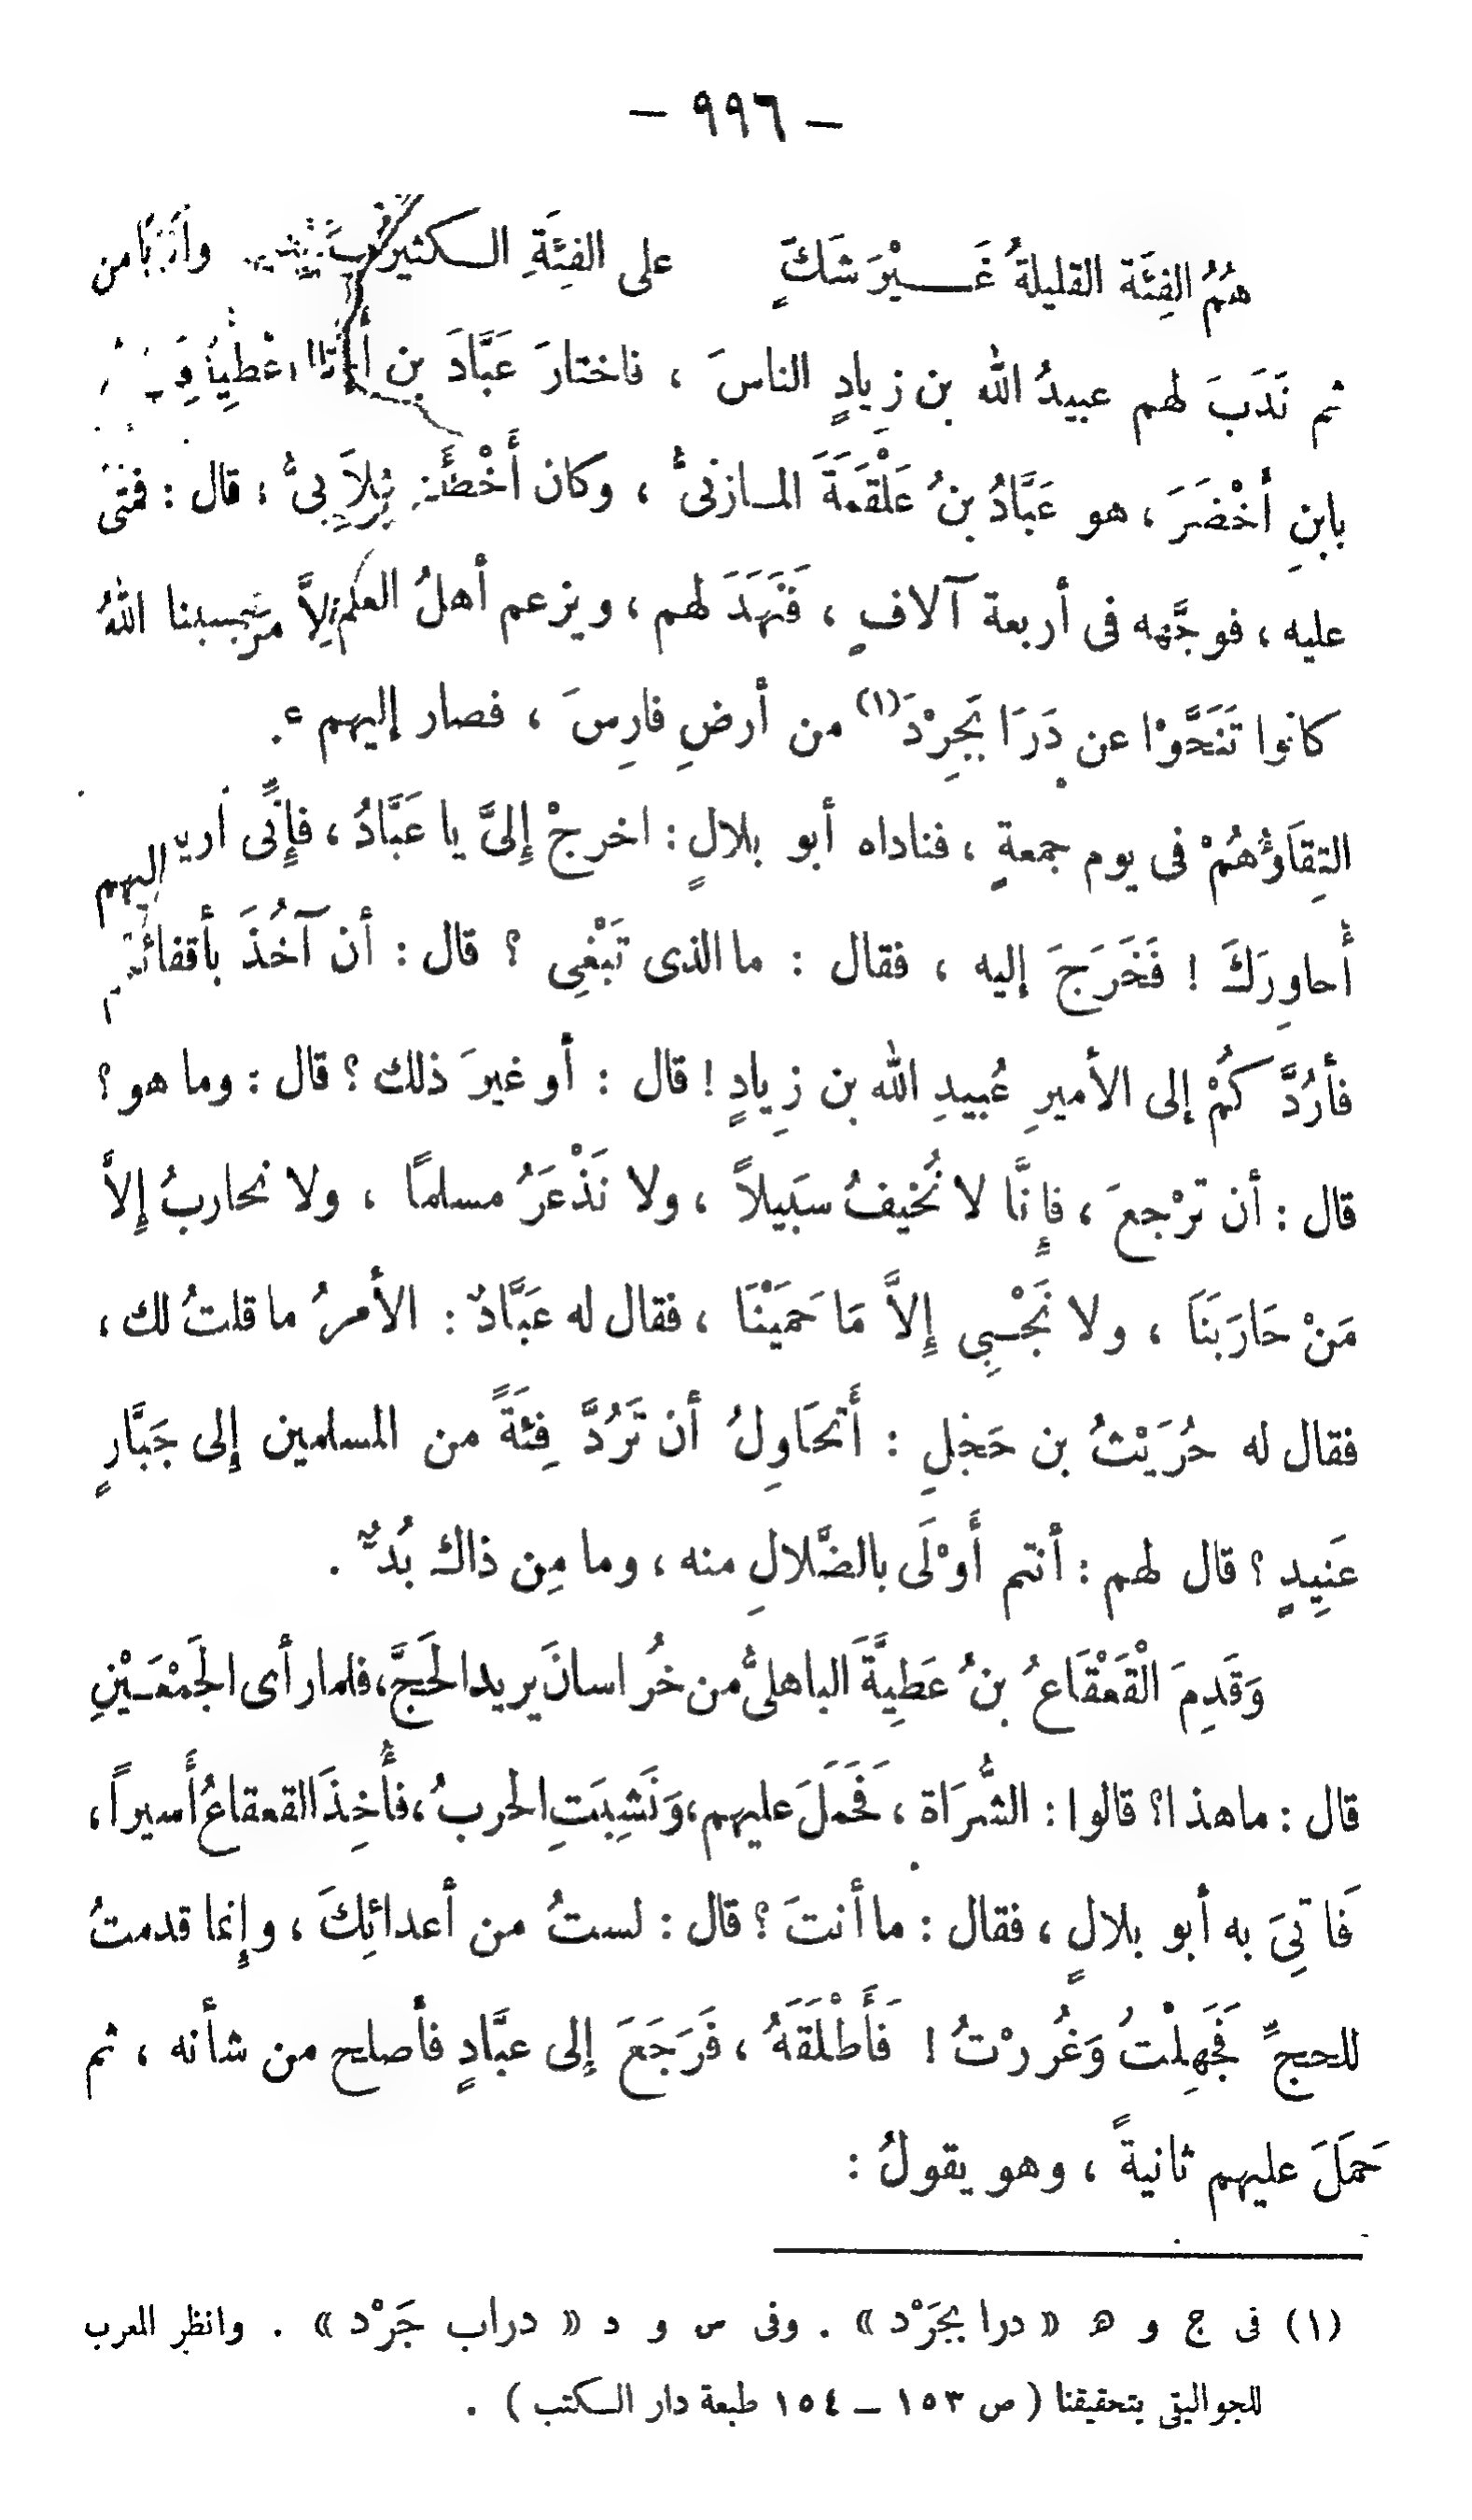 — ٩٩٦ —
هُمُ الفِئَة القليلةُ غَـــيْرَ شَكٍّ على الفِئَةِ الكثير
ثم نَدَبَ لهم عبيدُ الله بن زِيادٍ الناسَ ، فاختارَ عَبَّادَ بن
بابنِ أخْضَرَ ، هو عَبَّادُ بنُ عَلْقَمَةَ المازنىُّ ، وكان
عليه ، فوجَّهه فى أربعة آلافٍ ، فَنَهَدَ لهم ، ويزعم أهلُ العلم
كانوا تَنَحَّوْا عن دَرَابَجِرْدَ (١) من أرضِ فارِسَ ، فصار إليهم
التِقَاؤُهُمْ فى يوم جمعةٍ ، فناداه أبو بلالٍ : اخرجْ إلىَّ يا عَبَّادُ ، فإنِّى
أُحاوِرَكَ ! فَخَرَجَ إليه ، فقال : ما الذى تَبْغِى ؟ قال : أن آخُذَ
فأرُدَّكُمْ إلى الأميرِ عُبيدِ الله بن زِيادٍ ! قال : أو غيرَ ذلك ؟ قال : وما هو ؟
قال : أن تَرْجعَ ، فإنَّا لا نُخيفُ سبَيلاً ، ولا نَذْعَرُ مسلمًا ، ولا نحاربُ إلاَّ
مَنْ حَارَبَنَا ، ولا نَجْبِى إلاَّ مَا حَمَيْنَا ، فقال له عَبَّادٌ : الأمرُ ما قلتُ لك ،
فقال له حُرَيْثُ بن حَجْلٍ : أَتحَاوِلُ أن تَرُدَّ فِئَةً من المسلمين إلى جَبَّارٍ
عَنِيدٍ ؟ قال لهم : أنتم أَوْلَى بالضَّلالِ منه ، وما مِن ذاك بُدٌّ .
وَقَدِمَ الْقَعْقَاعُ بنُ عَطِيَّةَ الباهلىُّ من خُراسانَ يريد الحَجَّ ، فلما رأى الجَمْعَـيْنِ
قال : ما هذا ؟ قالوا : الشُّرَاة ، فَحَمَلَ عليهم ، وَنَشِبَتِ الحربُ ، فأُخِذَ القعقاعُ أَسيراً ،
فَأتِىَ به أبو بلالٍ ، فقال : ما أنتَ ؟ قال : لستُ من أعدائِكَ ، وإنما قدمتُ
للحجِّ فَجَهِلْتُ وَغُرِرْتُ ! فَأَطْلَقَهُ ، فَرَجَعَ إلى عبَّادٍ فأصلح من شأنه ، ثم
حَمَلَ عليهم ثانيةً ، وهو يقولُ :
(١) فى ج و ه « درا بجَرْد » . وفى س و د « دراب جَرْد » . وانظر المعرب
للجواليقى بتحقيقنا ( ص ١٥٣ – ١٥٤ طبعة دار الكتب ) .